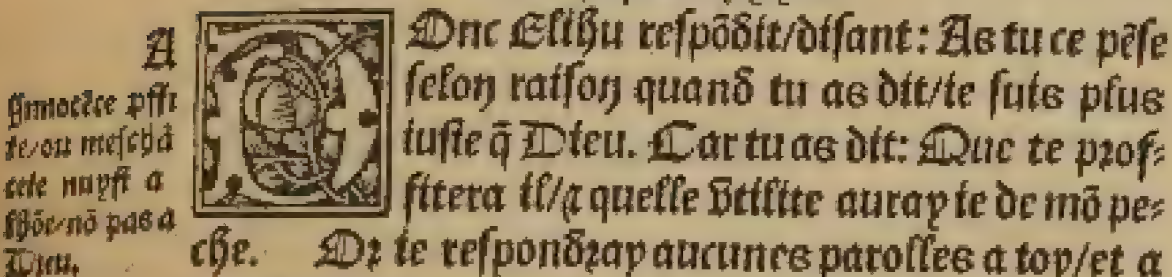 A
Innocẽce pffi
te/ou meschã
cete nuyst a
lhõe/nõ pas a
Dieu.
DOnc Elihu respõdit/disant: As tu ce pẽse
selon raison quand tu as dit/ie suis plus
iuste q̃ Dieu. Car tu as dit: Que te prof⸗
fitera il/& quelle vtilite auray ie de mõ pe⸗
che. Or ie respondray aucunes parolles a toy/et a